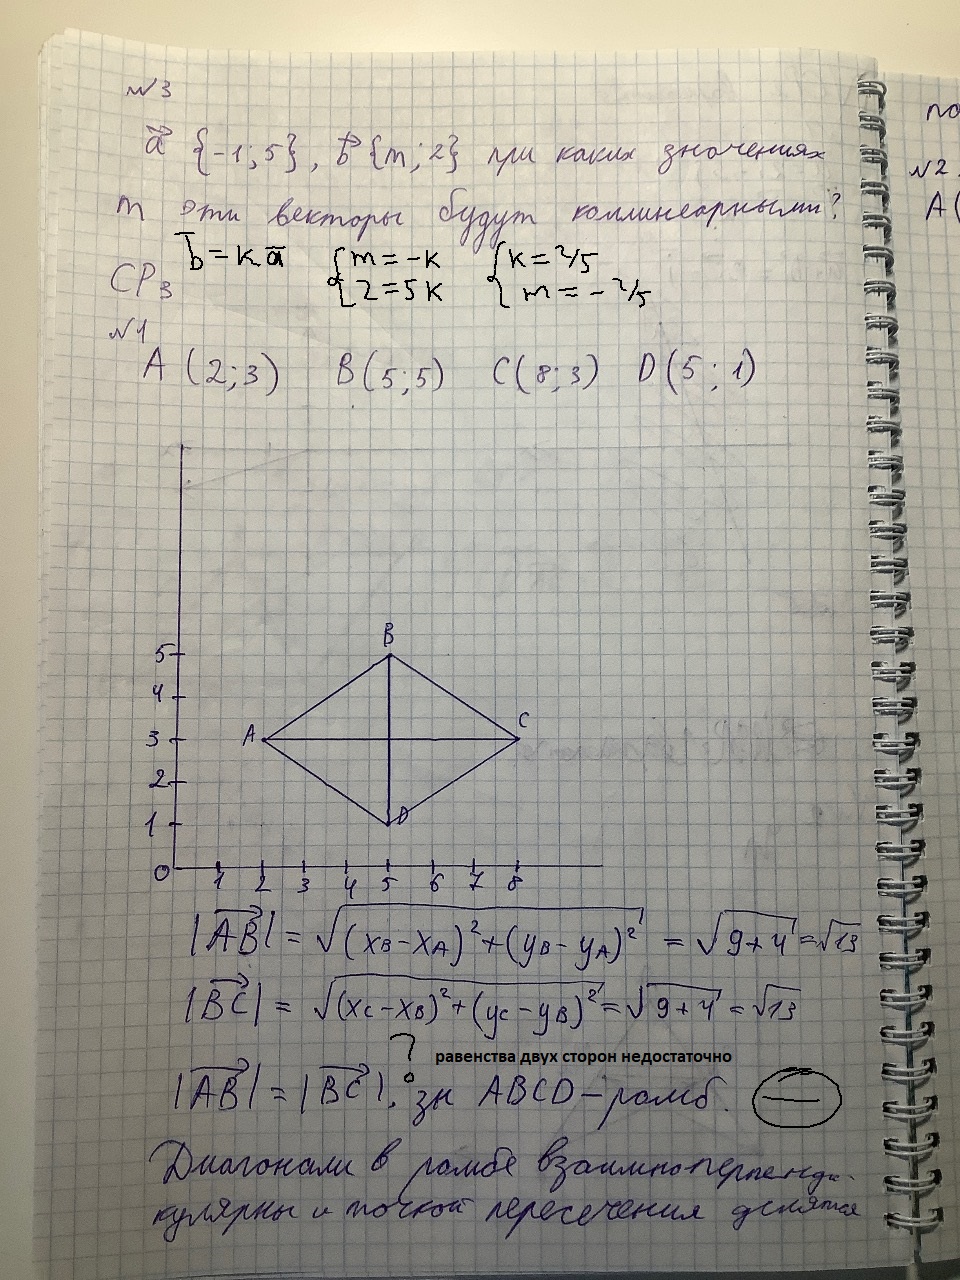 №3
a⃗ {-1; 5}, b⃗ {m; 2} при каких значениях
m эти векторы будут коллинеарными?
b̅ = k a̅ { m = -k 2 = 5k { k = 2/5 m = -2/5
СР3
№1
A (2; 3) B (5; 5) C (8; 3) D (5; 1)
B
5
4
A 3 C
2
1 D
0 1 2 3 4 5 6 7 8
|AB| = √(xB - xA)² + (yB - yA)² = √9 + 4 = √13
|BC| = √(xC - xB)² + (yC - yB)² = √9 + 4 = √13
? равенства двух сторон недостаточно
|AB| = |BC|, зн ABCD - ромб. —
Диагонали в ромбе взаимноперпенди-
кулярны и точкой пересечения делятся
по
№2.
A (